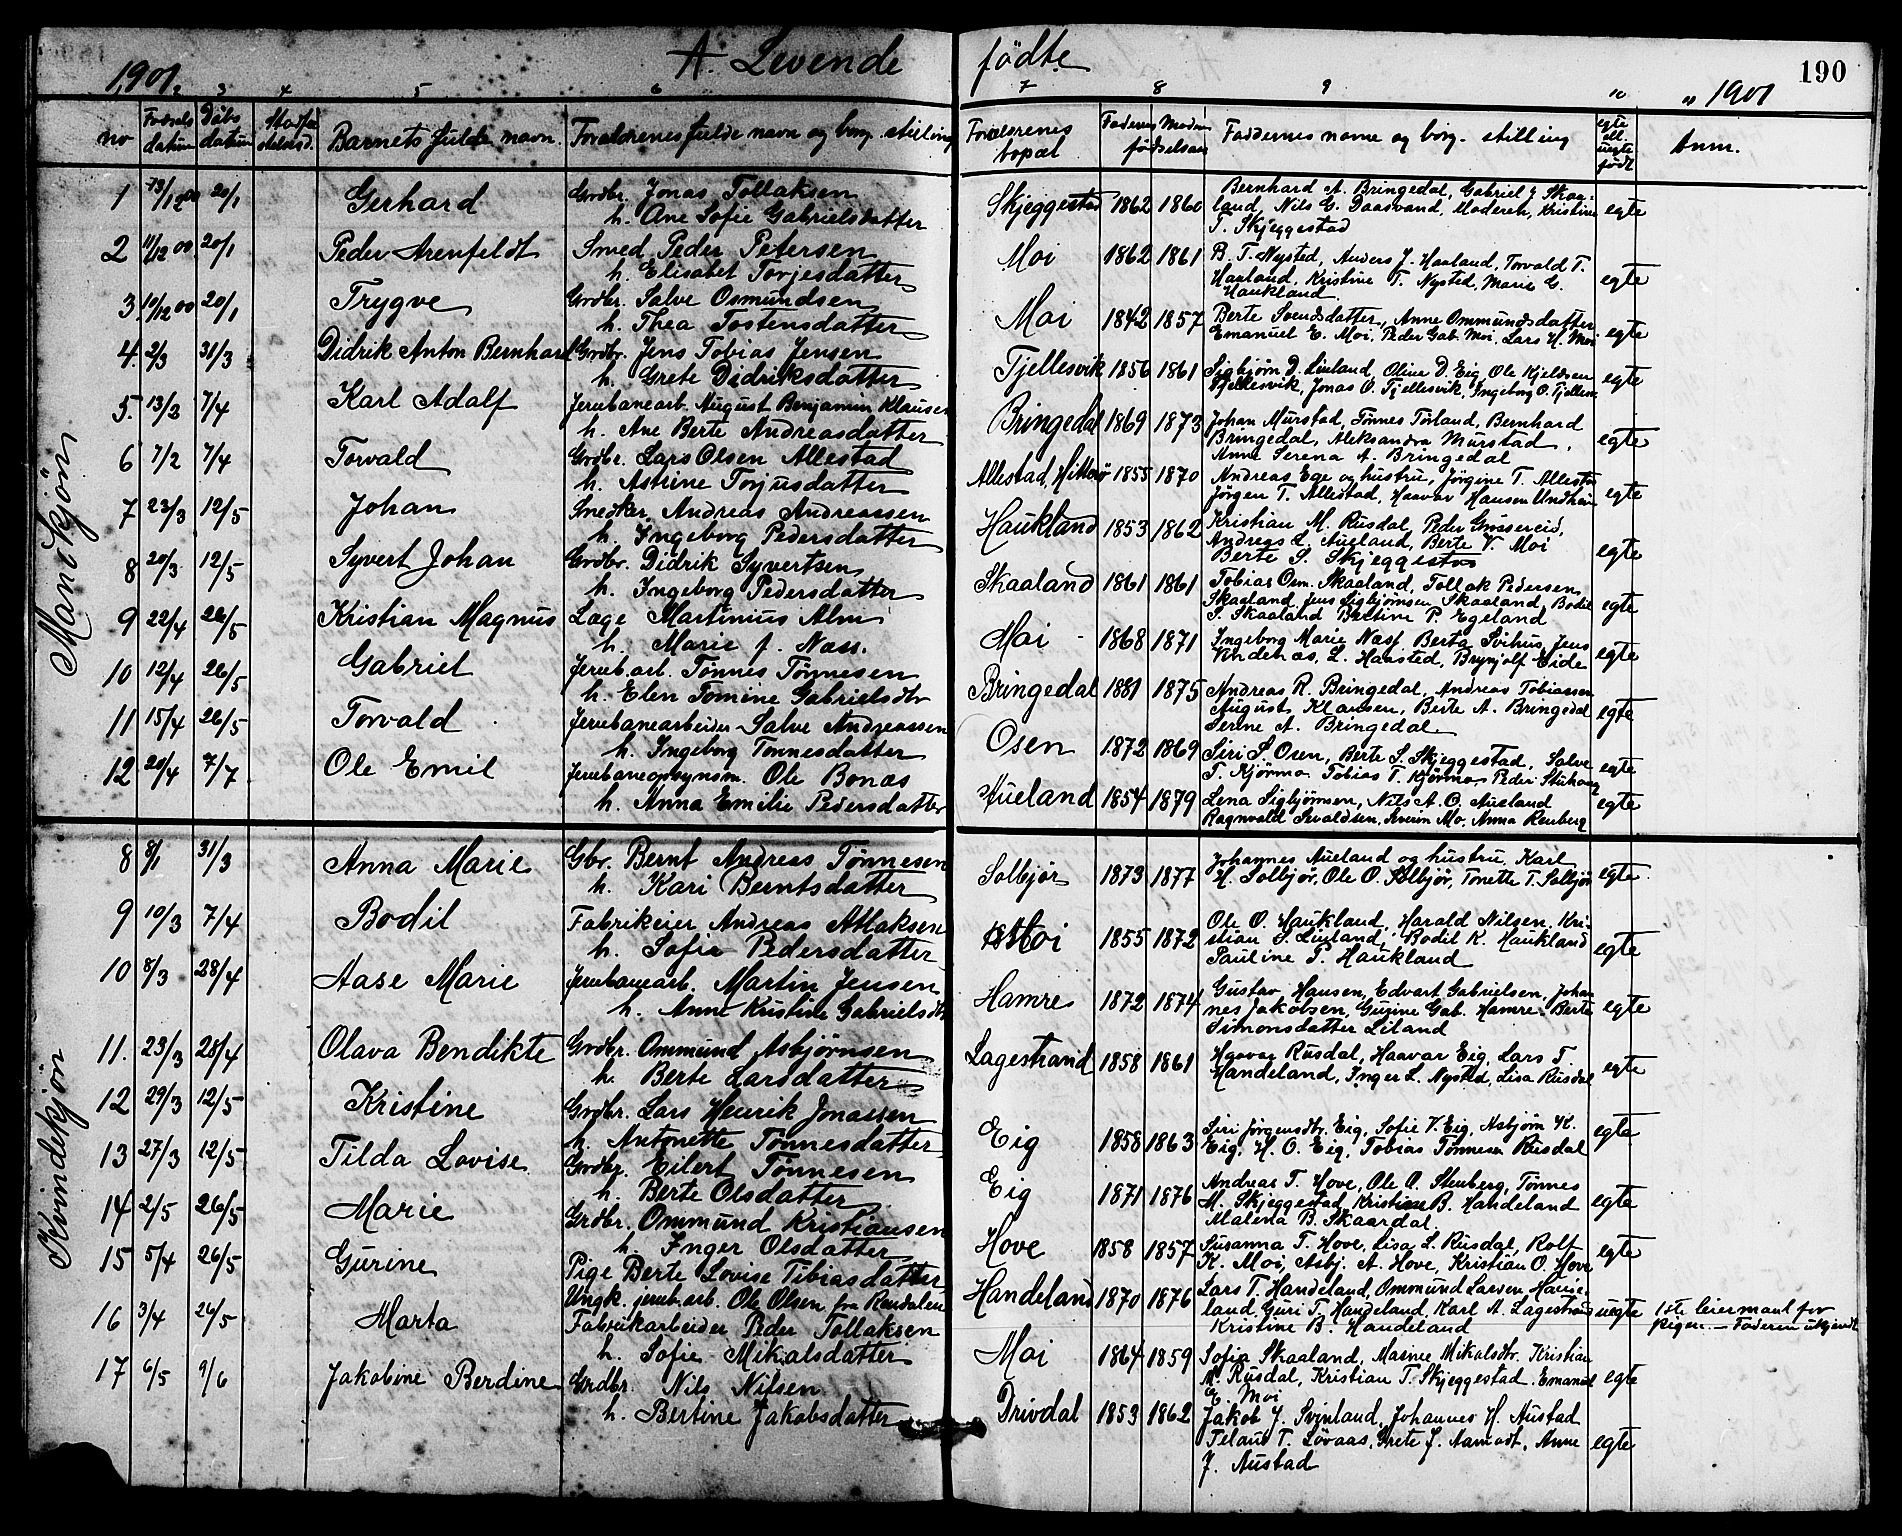 1901. A. Levende fødte 1901 190
2 3 4 5 6 7 8 9 10 11
no Fødsels datum Døbs datum Barnets fulde navn. Forældrenes fulde navn og borg. stilling Forældrenes bopæl Faderens Moderens fødselsaar Faddernes navne og borg. stilling egte ell. uegte født Anm.
Mandkjøn
1 13/12 00 20/1 Gerhard Grdbr. Jonas Tollaksen Skjeggestad 1862 1860 Bernhard A. Bringedal, Gabriel J. Skaa- egte
h. Ane Sofie Gabrielsdatter land, Nils G. Daasvand, Moderen, Kristine
T. Skjeggestad
2 11/12 00 20/1 Peder Arenfeldt Smed Peder Petersen Moi 1862 1861 B. T. Nysted, Anders J. Haaland, Torvald T. egte
h. Elisabet Torjesdatter Haaland, Kristine T. Nysted, Marie G.
Haukland.
3 10/12 00 20/1 Trygve Grdbr. Salve Osmundsen Moi 1842 1857 Berte Svendsdatter, Anne Ommundsdatter egte
h. Thea Tostensdatter Emanuel E. Moi, Peder Gab. Moi, Lars H. Moi
4. 2/3 31/3 Didrik Anton Bernhard Grdbr. Jens Tobias Jensen Tjellesvik 1856 1861 Sigbjørn D. Liuland, Oline D. Eig, Ole Kjeldsen egte
h. Grete Didriksdatter Tjellesvik, Jonas O. Tjellesvik, Ingeborg O. Tjellesv
5. 13/2 7/4 Karl Adolf Jernbanearb. August Benjamin Klausen Bringedal 1869 1873 Johan Murstad, Tønnes Tørland, Bernhard egte
h. Ane Berte Andreasdatter Bringedal, Aleksandra Murstad,
Anne Serena A. Bringedal
6 7/2 7/4 Torvald Grdbr. Lars Olsen Allestad Allestad, Hitterø 1855 1870 Andreas Ege og hustru, Jørgine T. Allestad egte
h. Astrine Torjusdatter Jørgen T. Allestad, Haavar Hansen Undheim
7 23/3 12/5 Johan Snedker Andreas Andreassen Haukland 1853 1862 Kristian M. Rusdal, Peder Grøssereid, egte
h. Ingeborg Pedersdatter Andreas L. Aueland, Berte V. Moi
Berte S. Skjeggestad
8 20/3 12/5 Syvert Johan Grdbr. Didrik Syvertsen Skaaland 1861 1861 Tobias Osm. Skaaland, Tollak Pedersen egte
h. Ingeborg Pedersdatter Skaaland, Jens Sigbjørnsen Skaaland, Bodil
S. Skaaland Bertine P. Egeland
9 22/4 26/5 Kristian Magnus Læge Martinius Alm Moi 1868 1871 Ingeborg Marie Næss, Berta Svihus, Jens egte
h. Marie f. Næss. Andenæs, L. Haasted, Brynjolf Eide
10 12/4 26/5 Gabriel Jernb.arb. Tønnes Tønnesen Bringedal 1881 1875 Andreas R. Bringedal, Andreas Tobiassen egte
h. Elen Tomine Gabrielsdtr August Klausen, Berte A. Bringedal
Serine A. Bringedal.
11 15/4 26/5 Torvald Jernbanearbeider Salve Andreassen Osen 1872 1869 Siri S. Osen, Berte S. Skjeggestad, Salve egte
h. Ingeborg Tønnesdatter T. Kjørmo Tobias T. Kjørmo Peder Stuhaug
12 20/4 7/7 Ole Emil Jernbaneopsynsm. Ole Bonæs Aueland 1854 1879 Lena Sigbjørnsen, Nils A. O. Aueland egte
h. Anna Emilie Pedersdatter Ragnvald Sivaldsen, Severin Mo, Anna Renberg
Kvindekjøn
8 8/1 31/3 Anna Marie Gbr. Bernt Andreas Tønnesen Solbjør 1873 1877 Johannes Aueland og hustru, Karl egte
h. Kari Berntsdatter H. Solbjør, Ole O. Solbjør, Tonette T. Solbjør
9 10/3 7/4 Bodil Fabrikeier Andreas Atlaksen Moi 1855 1872 Ole O. Haukland, Harald Nilsen, Kri- egte
h. Sofie Pedersdatter stian S. Liuland, Bodil K. Haukland
Pauline T. Haukland
10 8/3 28/4 Aase Marie Jernbanearb. Martin Jensen Hamre 1872 1874 Gustav Hansen, Edvart Gabrielsen, Johan egte
h. Anne Kristine Gabrielsdtr nes Jakobsen, Gurine Gab. Hamre Berte
Simonsdatter Leland
11. 23/3 28/4 Olava Bendikte Grdbr. Ommund Asbjørnsen Lagestrand 1858 1861 Haavar Rusdal, Haavar Eig, Lars T. egte
h. Berte Larsdatter Handeland, Inger L. Nysted, Lisa Rusdal
12 29/3 12/5 Kristine Grdbr. Lars Henrik Jonassen Eig 1858 1863 Siri Jørgensdtr. Eig, Sofie V. Eig, Asbjørn H. egte
h. Antonette Tønnesdatter Eig, H. O. Eig, Tobias Tønnesen Rusdal
13 27/3 12/5 Tilda Lovise. Grdbr. Eilert Tønnesen Eig 1871 1876 Andreas T. Hove, Ole O. Stenberg, Tønnes egte
h. Berte Olsdatter M. Skjeggestad, Kristine B. Handeland
Malena B. Skaardal
14 2/5 26/5 Marie Grdbr. Ommund Kristiansen Hove 1858 1857 Susanna T. Hove, Lisa L. Rusdal, Rolf egte
h. Inger Olsdatter K. Moi, Asbj. A. Hove, Kristian O. Hove
15 5/4 26/5 Gurine Pige Berte Lovise Tobiasdatter Handeland 1870 1876 Lars T. Handeland, Ommund Larsen Hande- uegte 1ste leiermaal for
Ungk. jernb.arb. Ole Olsen fra Rendalen land, Guri T. Handeland, Karl A. Lagestrand pigen. — Faderen ukjendt
Kristine B. Handeland
16 3/4 26/5 Marta Fabrikarbeider Peder Tollaksen Moi 1864 1859 Sofie Skaaland, Masnee Mikalsdtr. Kristian egte
h. Sofie Mikalsdatter M. Rusdal, Kristian T. Skjeggestad. Emanuel
E. Moi
17 6/5 9/6 Jakobine Berdine Grdbr. Nils Nilsen Drivdal 1853 1862 Jakob J. Svinland, Johannes H. Austad egte
h. Bertine Jakobsdatter T. Løvaas, Grete J. Aamodt, Anne
J. Austad